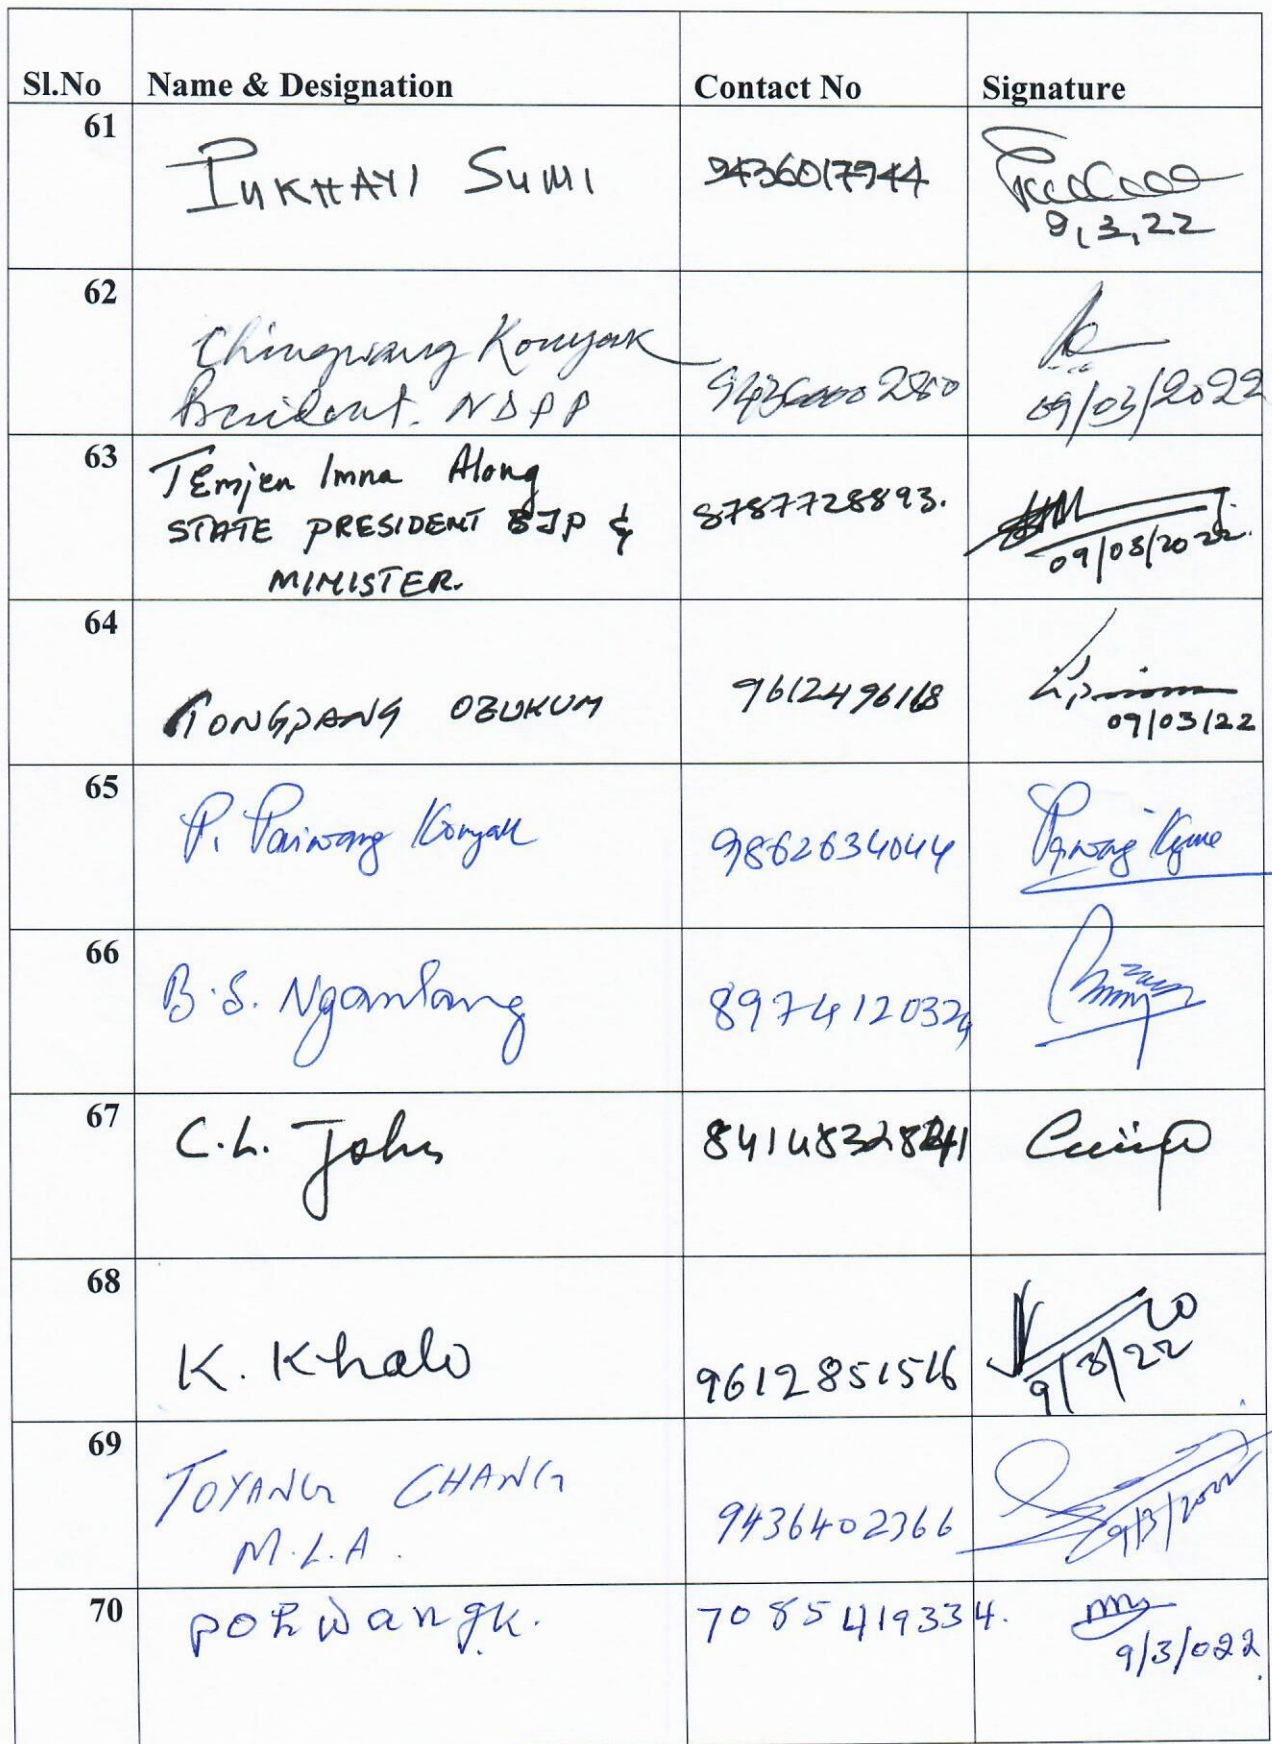 Sl.No Name & Designation Contact No Signature
61
PUKHAYI SUMI 9436017944
9,3,22
62
Chingwang Konyak
President. NDPP
09/03/2022
63
TEmjen Imna Along
STATE PRESIDENT BJP &
MINISTER.
8787728893.
09/03/2022.
64
TONGPANG OZUKUM 9612496168
09/03/22
65
P. Paiwang Konyak 9862634044
66
B.S. Nganlang 8974120324
67
C.L. John
68
K. Khalo 9612851516
9/3/22
69
TOYANG CHANG
M.L.A.
9436402366
9/3/2022
70
pohwangk. 7085419334.
9/3/022